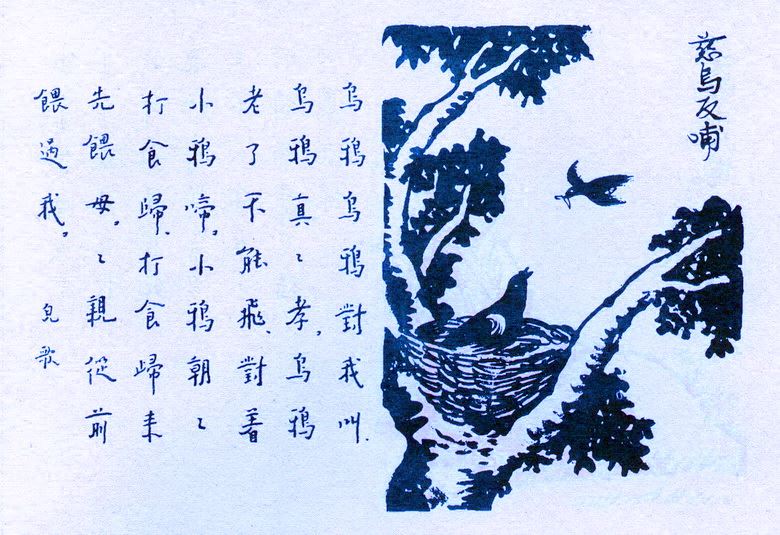 慈烏反哺
烏鴉烏鴉對我叫、
烏鴉真〻孝。烏鴉
老了不能飛、對着
小鴉啼。小鴉朝〻
打食歸、打食歸来
先餵母。〻親從前
餵過我。 兒歌